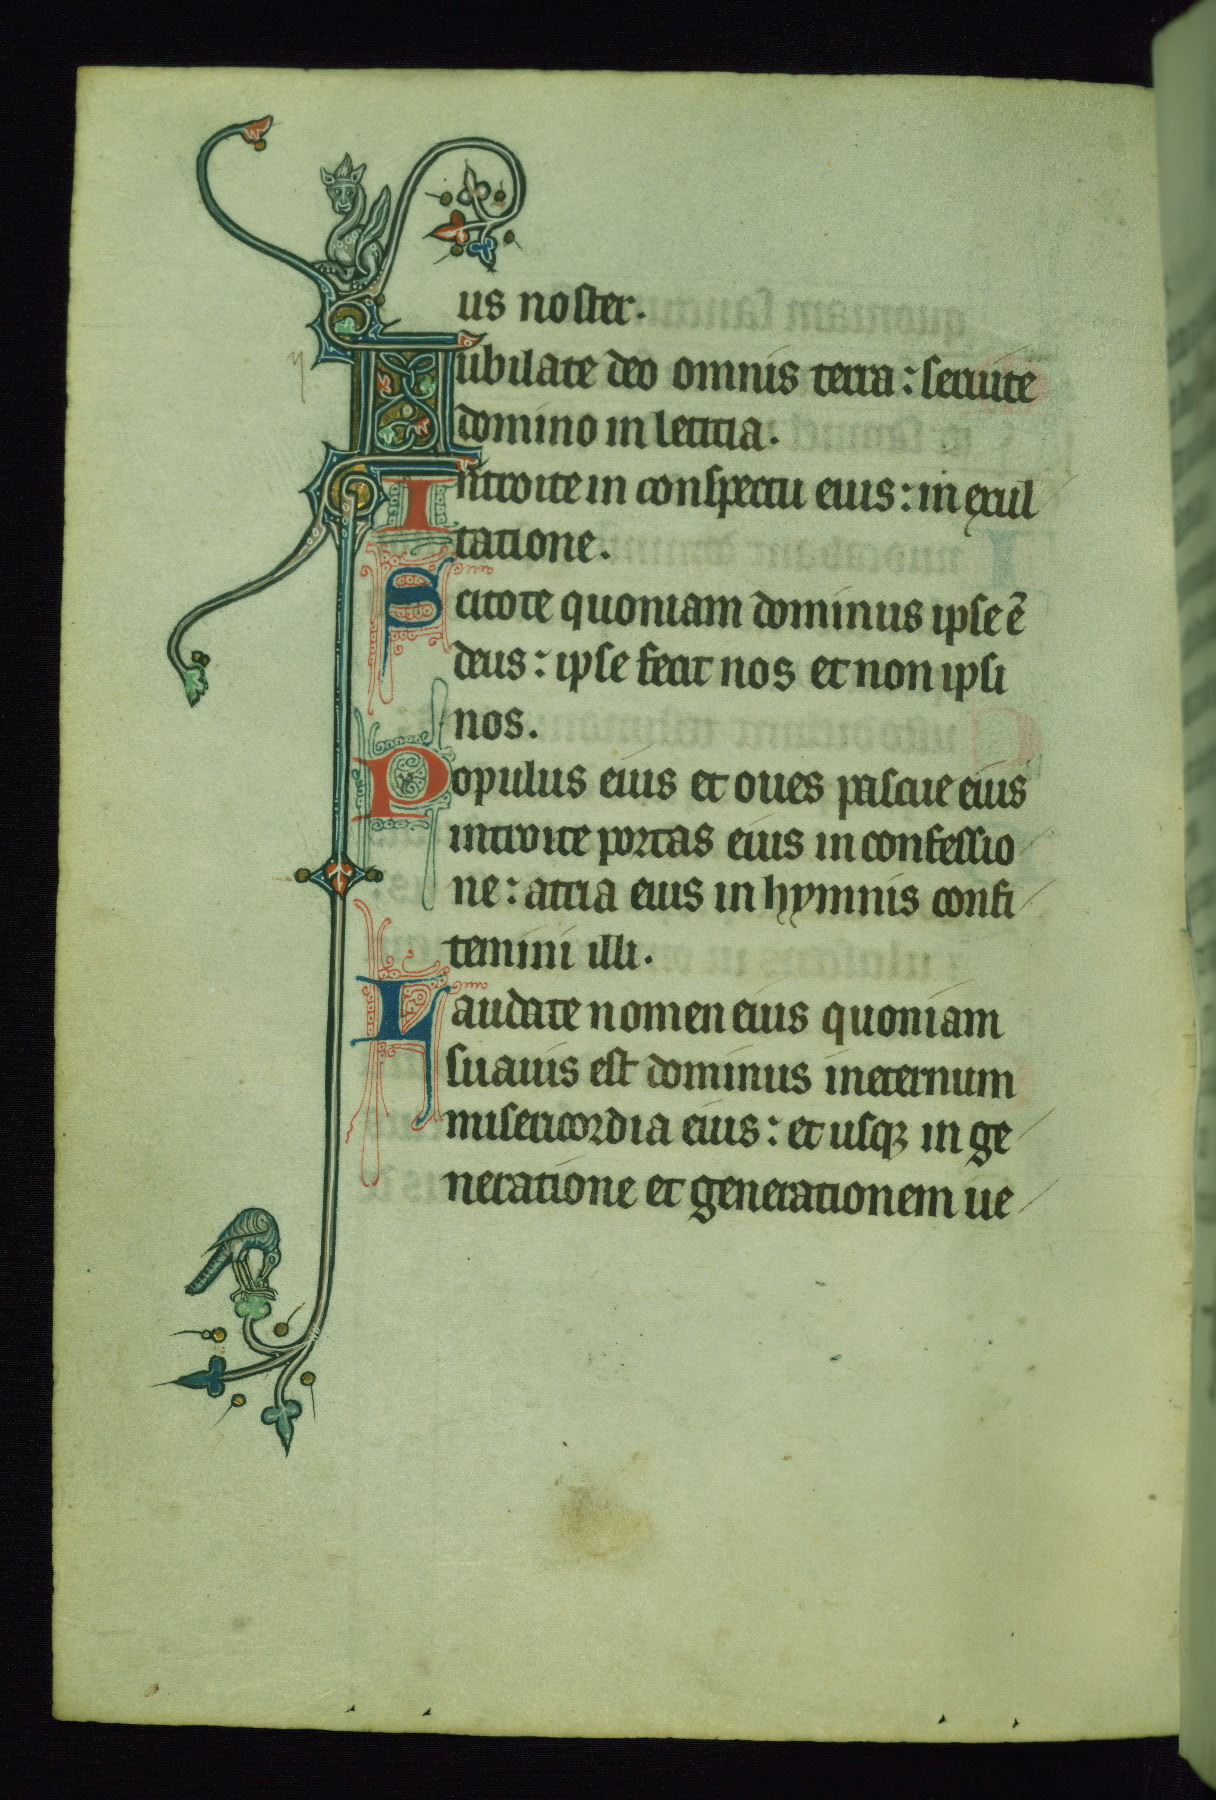 us noster.
Iubilate deo omnis terra: seruite
domino in leticia.
Introite in conspectu eius: in exul
tatione.
Scitote quoniam dominus ipse ē
deus: ipse fecit nos et non ipsi
nos.
Populus eius et oues pascue eius
introite portas eius in confessio
ne: atria eius in hymnis confi
temini illi.
Laudate nomen eius quoniam
suauis est dominus in eternum
misericordia eius: et usqꝫ in ge
neratione et generationem ue